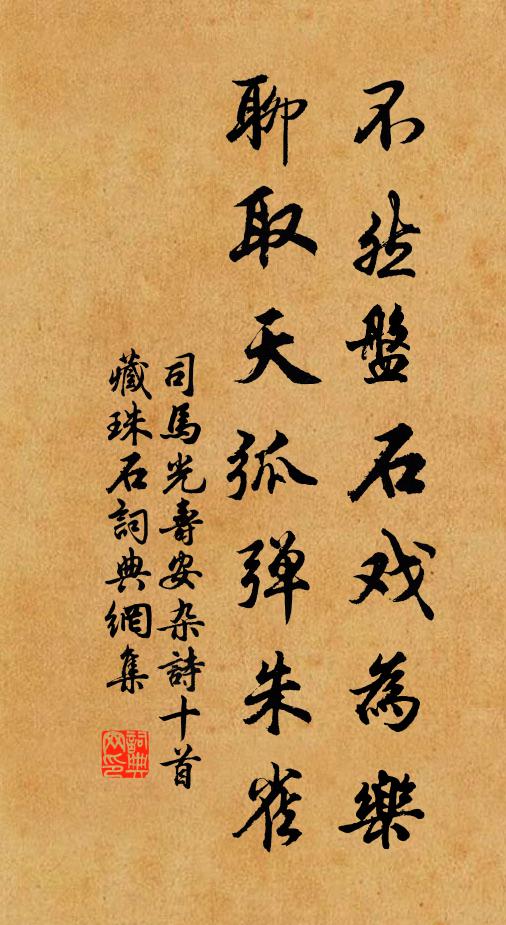 不然盤石戏為樂
聊取天弧弹朱雀
司馬光壽安杂詩十首
藏珠石詞典網集
詞典網印